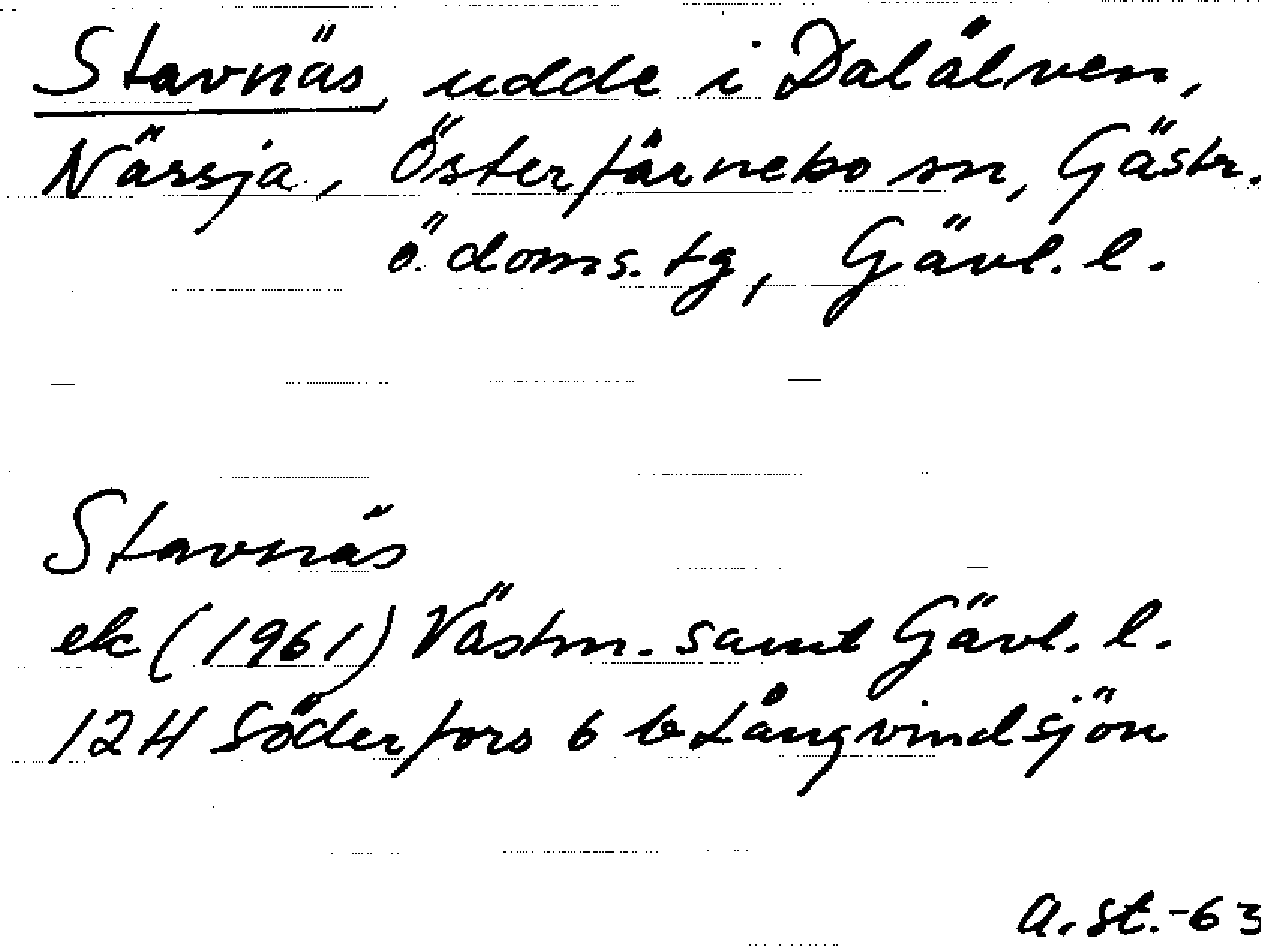 Stavnäs, udde i Dalälven,
Nässja, Österfärnebo sn, Gästr.
ö. doms. tg, Gävl. l.
Stavnäs
ek (1961) Västm. samt Gävl. l.
12H Söderfors 6 b Långvindsjön
a. st. -63